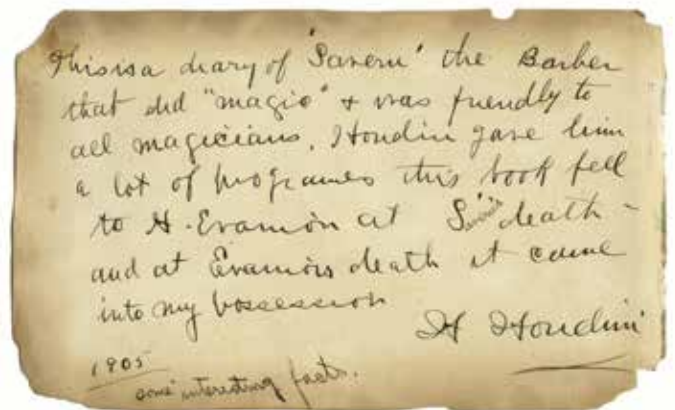 This is a diary of "Savern" the Barber
that did "magic" & was friendly to
all magicians. Houdin gave him
a lot of programes this book fell
to H. Evanion at S death -
and at Evanions death it came
into my possession
H Houdini
1905
some interesting facts.